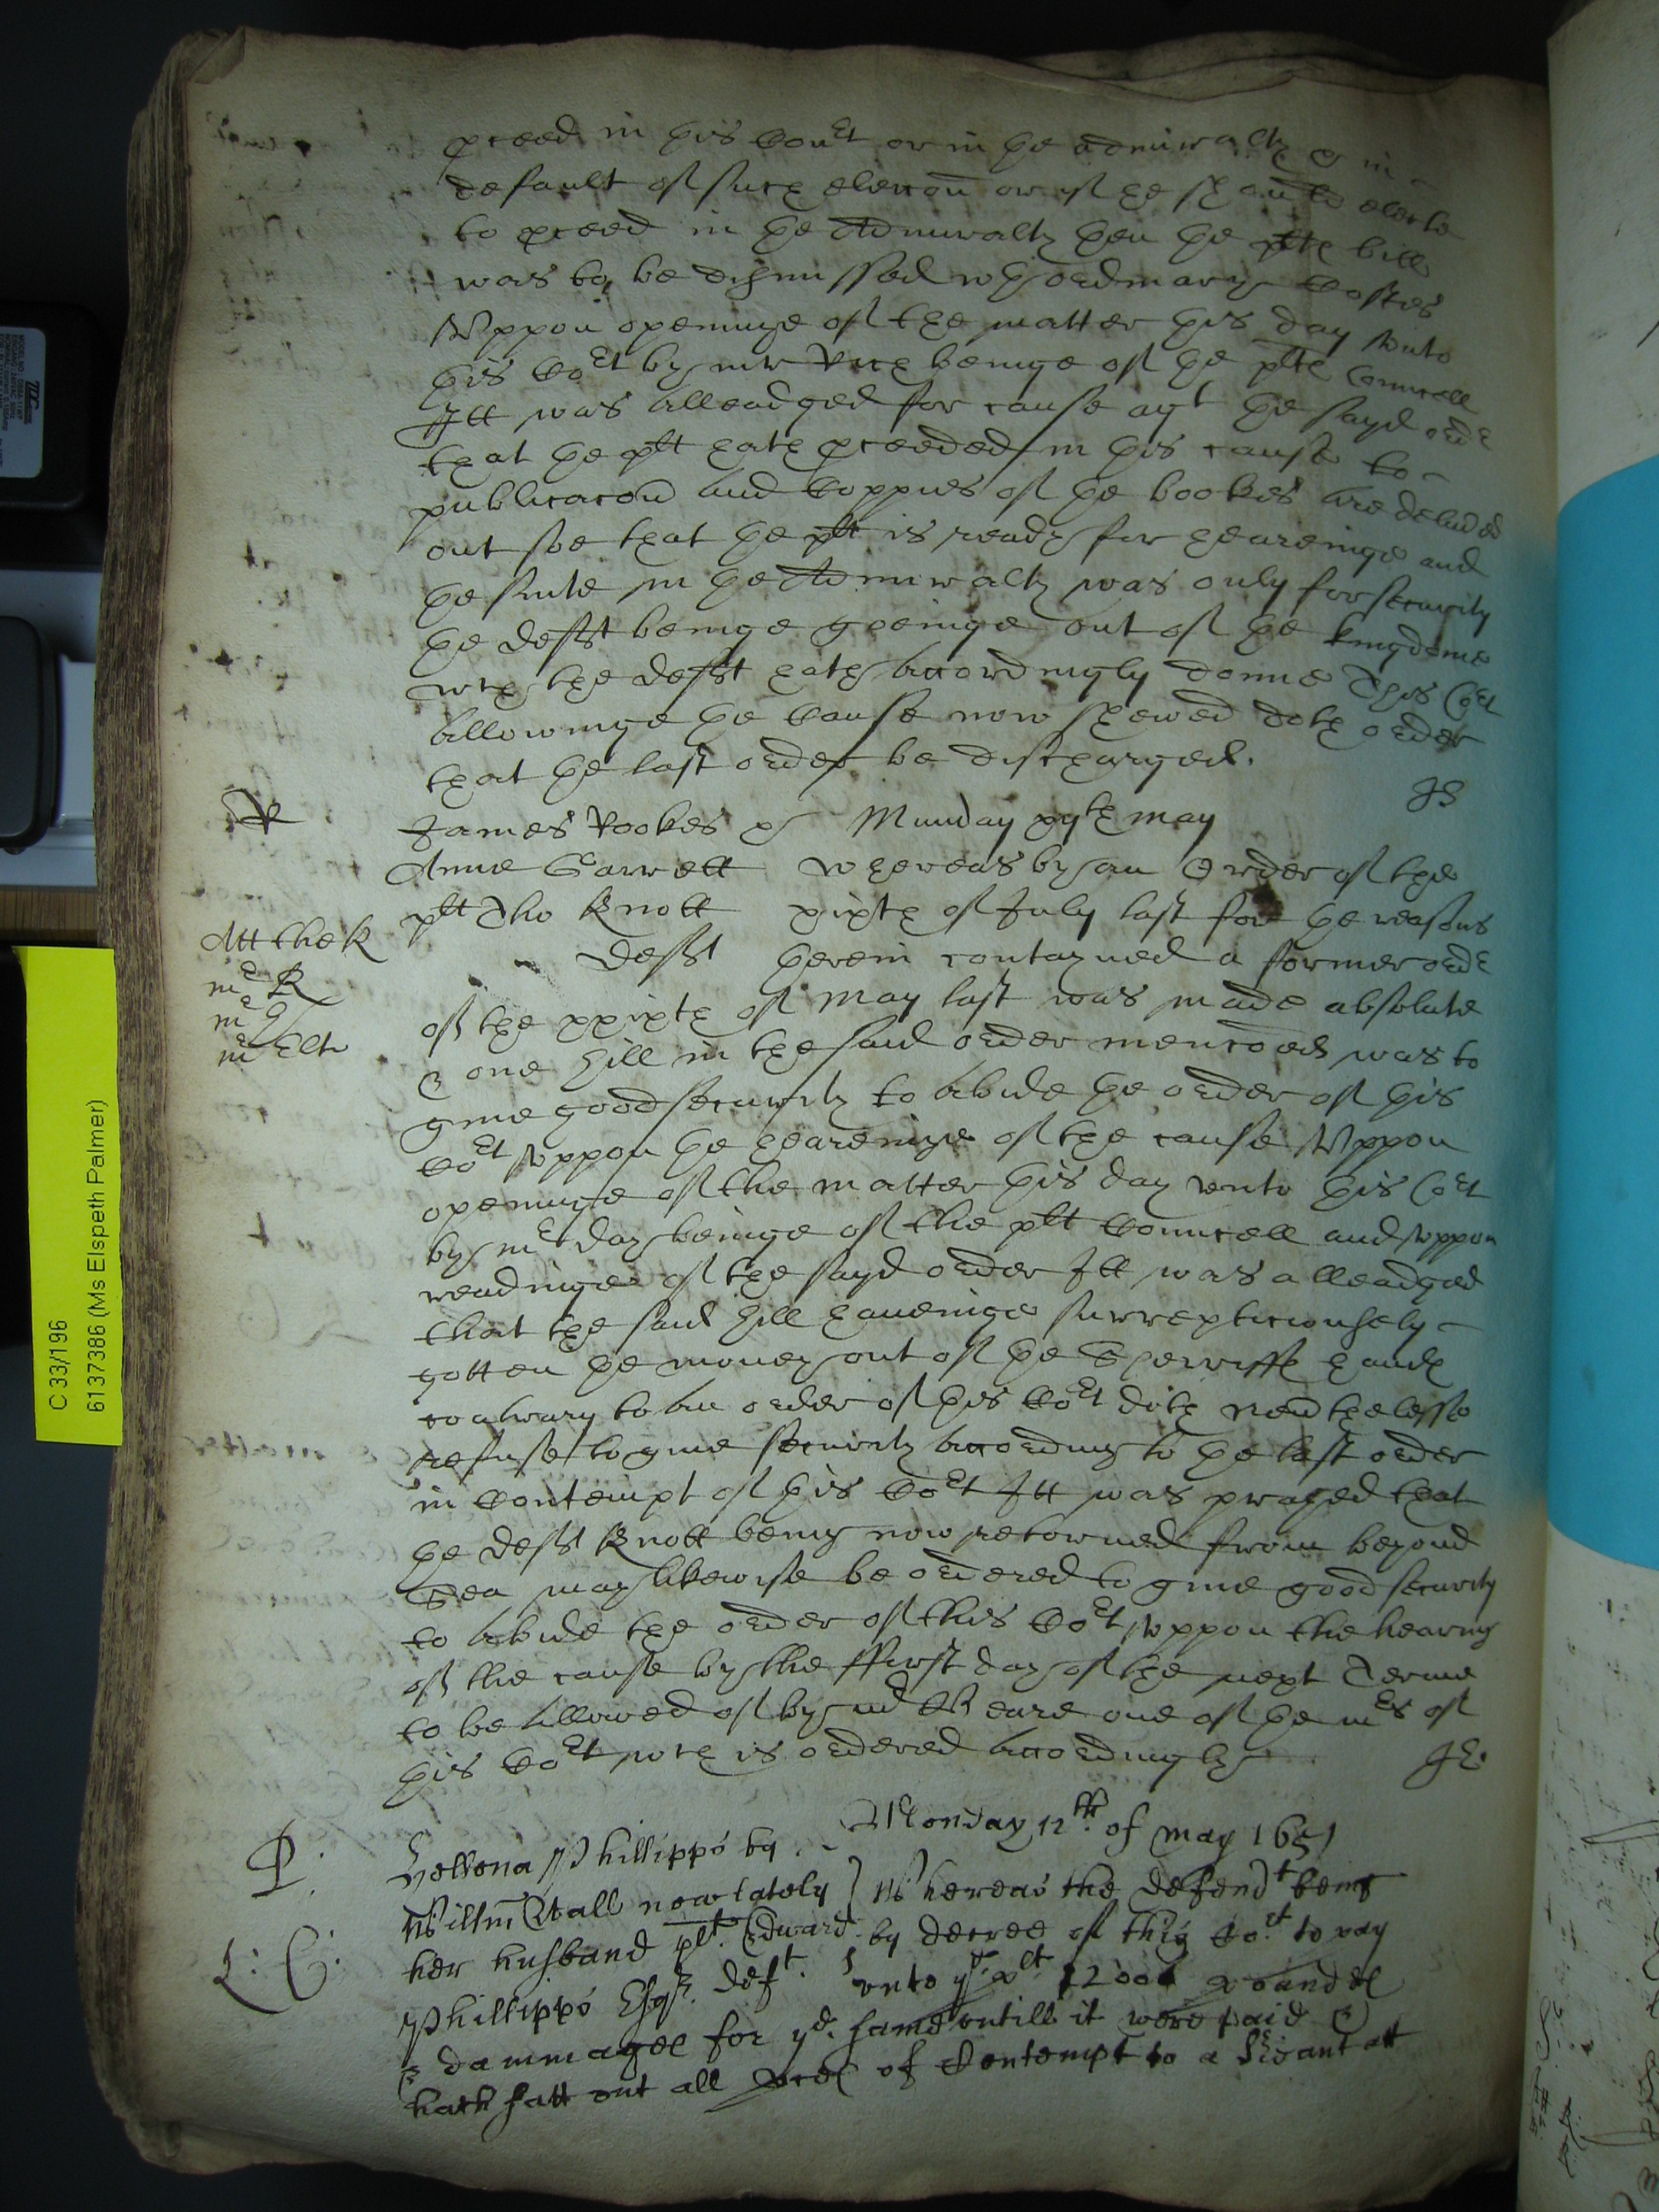 pceed in this Cort or in the admiralty & in
default of such eleccon or if he should electe
to pceed in the Admiralty then the plts bill
was to be dismissed wth ordinary Costes
Uppon openinge of the matter this day unto
this Cort by mr Rich beinge of the plts Councell
Itt was alleadged for cause agt the sayd ordr
that the plt hath pceeded in this cause to
publicacon and Coppies of the bookes are delivd
out soe that the plt is ready for heareinge and
the suite in the Admiralty was only for security
the deft beinge goeinge out of the kingdome
wch the deft hath accordingly donne This Cort
allowinge the Cause now shewed doth order
that the last order be discharged.
JS
R
James Rookes &
Munday xijth may
Anne Garrett
Whereas by an Order of the
plt Tho Knott
xixth of July last for the reasons
Deft
therein contayned a former ordr
Att the R
mr R
mr
mr Elt
of the xxixth of May last was made absolute
& one Hill in the said order menconed was to
give good security to abide the order of this
Cort Uppon the heareinge of the cause Uppon
openinge of the matter this day unto this Cort
by mr day beinge of the plt Councell and uppon
readinge of the sayd order Itt was alleadged
that the said Hill haveinge surrepticiously
gotten the money out of the Sherriffs hands
contrary to an order of this Cort doth nevrthelesse
refuse to give security accordinge to the last order
in Contempt of this Cort Itt was prayed that
the deft Knott being now retorned from beyond
Sea may likewise be ordered to give good security
to abide the order of this Cort uppon the hearing
of the cause by the ffirst day of the next Terme
to be allowed of by mr Beare one of the mrs of
this Cort wch is ordered accordingly
JE.
Monday 12th of may 1651
P.
Phillipps by
Willm Wall now lately
Whereas the Defendt being
her husband plt. Edward
by decree of this Cort to pay
L: C:
Phillipps Esqr. deft.
unto ye plt 1200l pounds
& dammages for ye same untill it were paid &
hath satt out all pces of Contempt to a Sriant att
C 33/196
6137386 (Ms Elspeth Palmer)